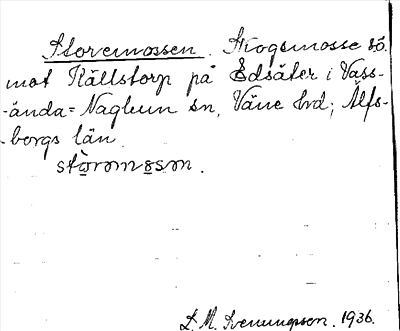 Storemossen. Skogsmosse sö.
mot Källstorp på Edsäter i Väss-
-ända-Naglum sn, Väne hrd; Älfs-
-borgs län.
storomosn.
S. M. Svenungsson. 1936.